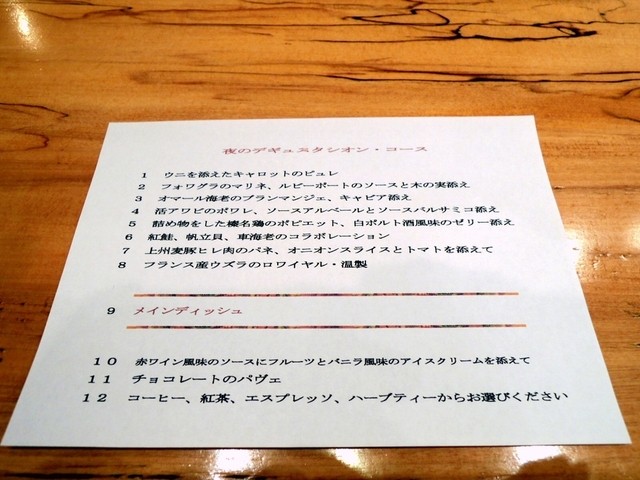 夜のデギュスタシオン・コース
1 ウニを添えたキャロットのピュレ
2 フォワグラのマリネ、ルビーポートのソースと木の実添え
3 オマール海老のブランマンジェ、キャビア添え
4 活アワビのポワレ、ソースアルベールとソースバルサミコ添え
5 詰め物をした榛名鶏のポピエット、白ポルト酒風味のゼリー添え
6 紅鮭、帆立貝、車海老のコラボレーション
7 上州麦豚ヒレ肉のパネ、オニオンスライスとトマトを添えて
8 フランス産ウズラのロワイヤル・温製
9 メインディッシュ
10 赤ワイン風味のソースにフルーツとバニラ風味のアイスクリームを添えて
11 チョコレートのパヴェ
12 コーヒー、紅茶、エスプレッソ、ハーブティーからお選びください